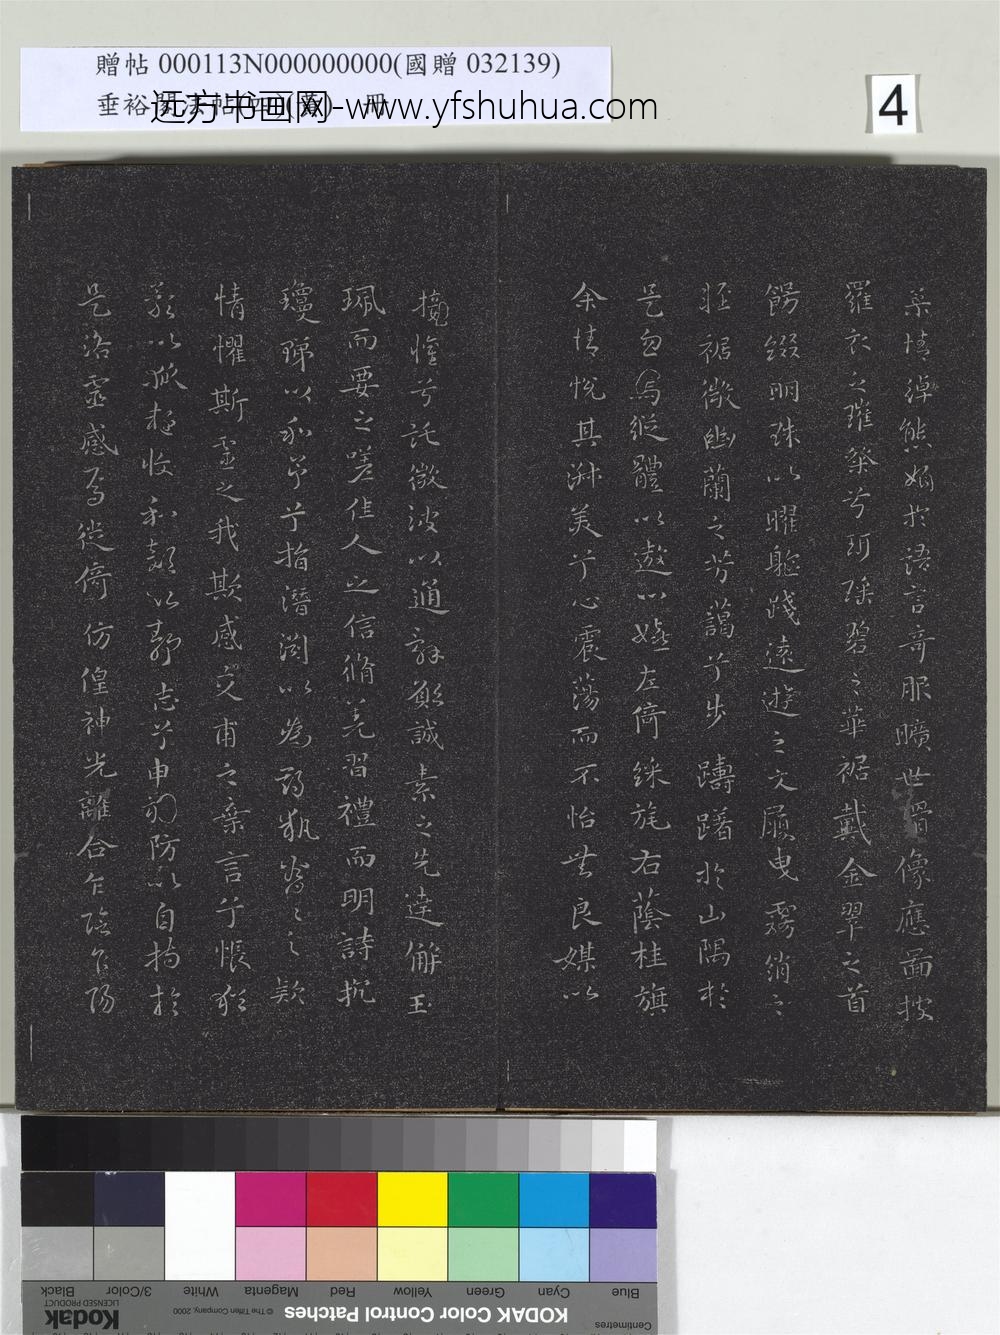 贈帖 000113N000000000(國贈 032139)
垂裕閣法帖 冊
远方书画网-www.yfshuhua.com
4
柔情綽態媚於語言奇服曠世骨像應圖披
羅衣之璀粲兮珥瑤碧之華裾戴金翠之首
餝綴明珠以曜軀踐遠遊之文履曳霧綃之
輕裾微幽蘭之芳藹兮步躊躇於山隅於
是忽焉縱體以遨以嬉左倚綵旄右蔭桂旗
余情悅其淑美兮心震蕩而不怡無良媒以
懽兮託微波以通辭願誠素之先達解玉
珮而要之嗟佳人之信脩羌習禮而明詩抗
瓊珶以和予兮指潛淵以為期執眷眷之款
情懼斯靈之我欺感交甫之棄言兮悵猶
以狐疑收和顏以靜志兮申禮防以自持於
是洛靈感焉徙倚仿偟神光離合乍陰乍陽
Centimetres
Blue
Cyan
Green
Yellow
Red
Magenta
White
3/Color
Black
KODAK Color Control Patches
© The Tiffen Company, 2000
Kodak
LICENSED PRODUCT